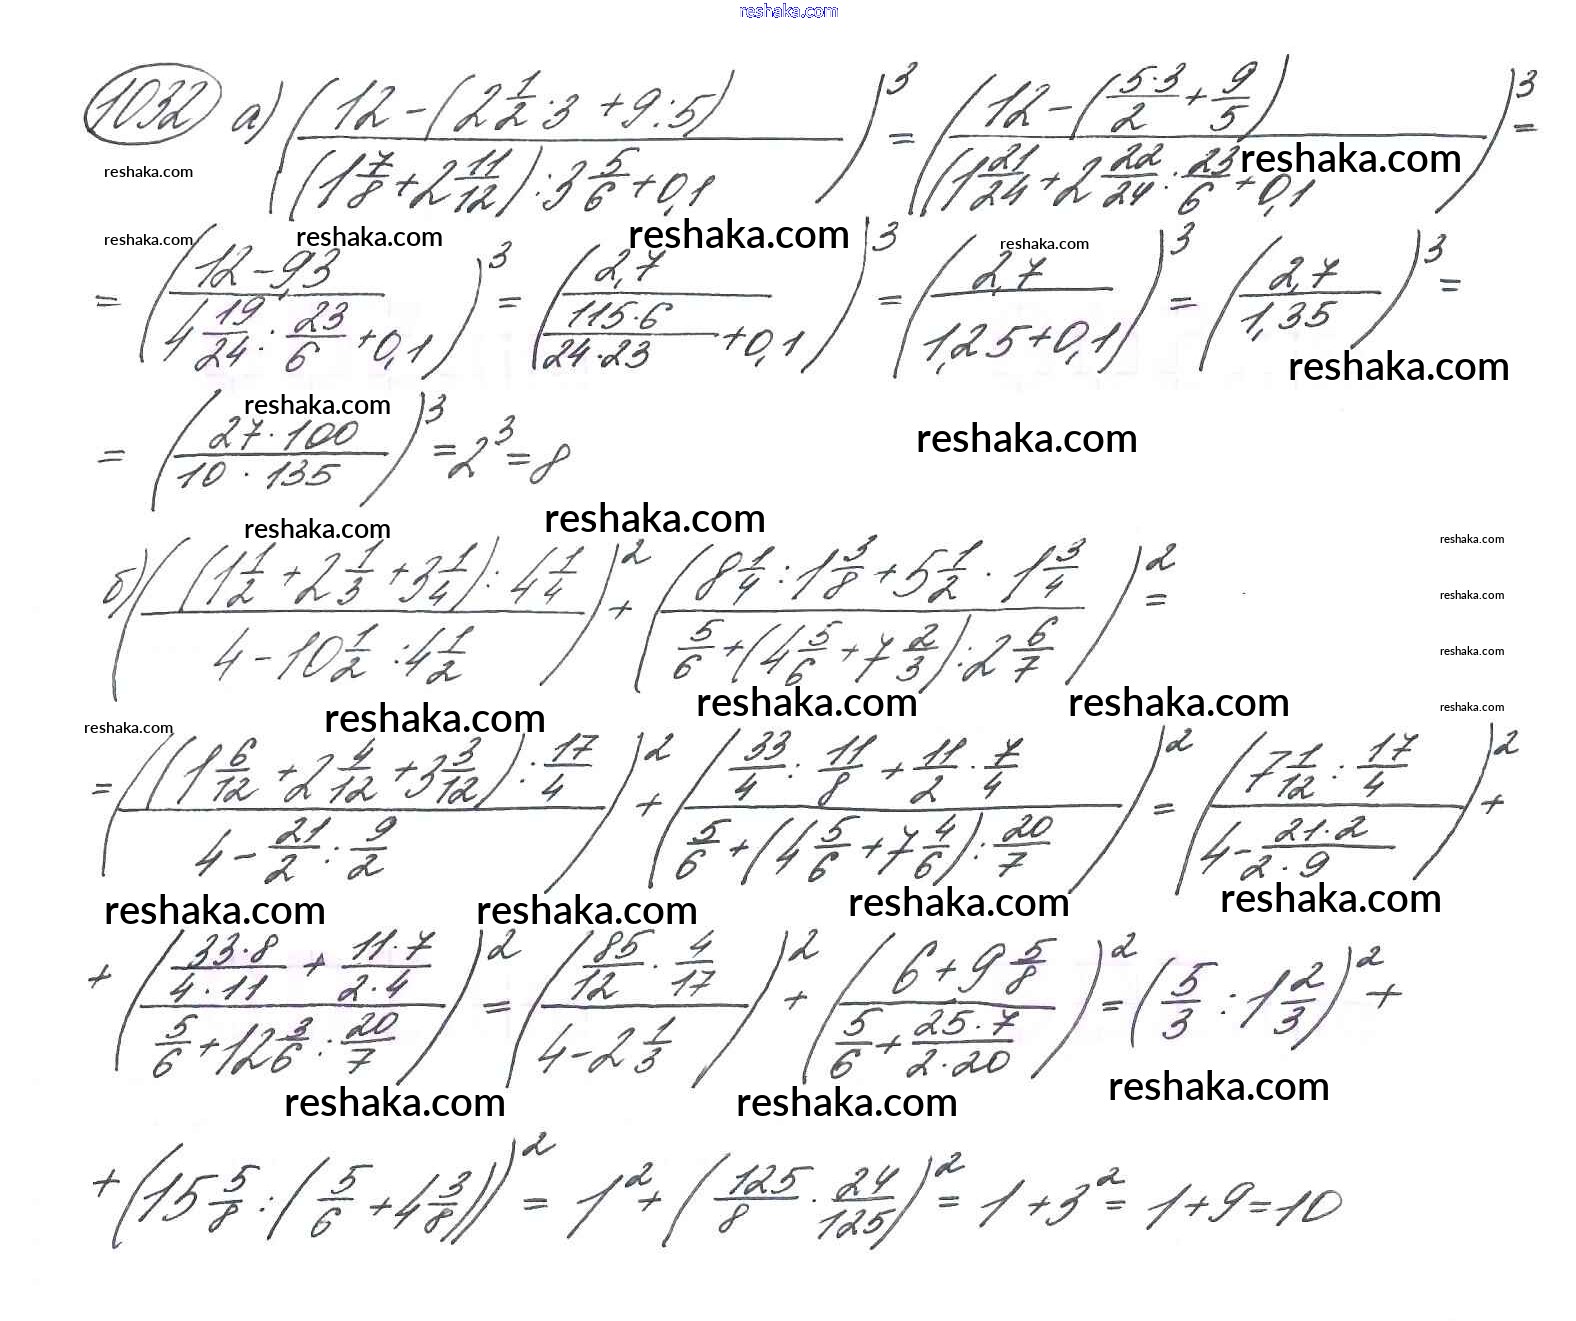 reshaka.com
1032 а) ((12-(2 1/2·3+9:5))/((1 7/8+2 11/12):3 5/6+0,1))³ = ((12-(5·3/2+9/5))/((1 21/24+2 22/24:23/6+0,1))³ =
reshaka.com reshaka.com
= ((12-9,3)/(4 19/24:23/6+0,1))³ = (2,7/(115·6/24·23+0,1))³ = (2,7/(1,25+0,1))³ = (2,7/1,35)³ =
reshaka.com reshaka.com reshaka.com reshaka.com
reshaka.com
= (27·100/10·135)³ = 2³ = 8
reshaka.com reshaka.com
reshaka.com reshaka.com
б) (((1 1/2+2 1/3+3 1/4):4 1/4)/(4-10 1/2:4 1/2))² + ((8 1/4:1 3/8+5 1/2·1 3/4)/(5/6+(4 5/6+7 2/3):2 6/7))² =
reshaka.com
reshaka.com
reshaka.com
reshaka.com reshaka.com reshaka.com reshaka.com reshaka.com
= (((1 6/12+2 4/12+3 3/12):17/4)/(4-21/2:9/2))² + ((33/4:11/8+11/2·7/4)/(5/6+(4 5/6+7 4/6):20/7))² = ((7 1/12:17/4)/(4-21·2/2·9))² +
reshaka.com reshaka.com reshaka.com reshaka.com
+ ((33·8/4·11+11·7/2·4)/(5/6+12 3/6:20/7))² = ((85/12·4/17)/(4-2 1/3))² + ((6+9 5/8)/(5/6+25·7/2·20))² = (5/3:1 2/3)² +
reshaka.com reshaka.com reshaka.com
+ (15 5/8:(5/6+4 3/8))² = 1² + (125/8·24/125)² = 1+3² = 1+9=10